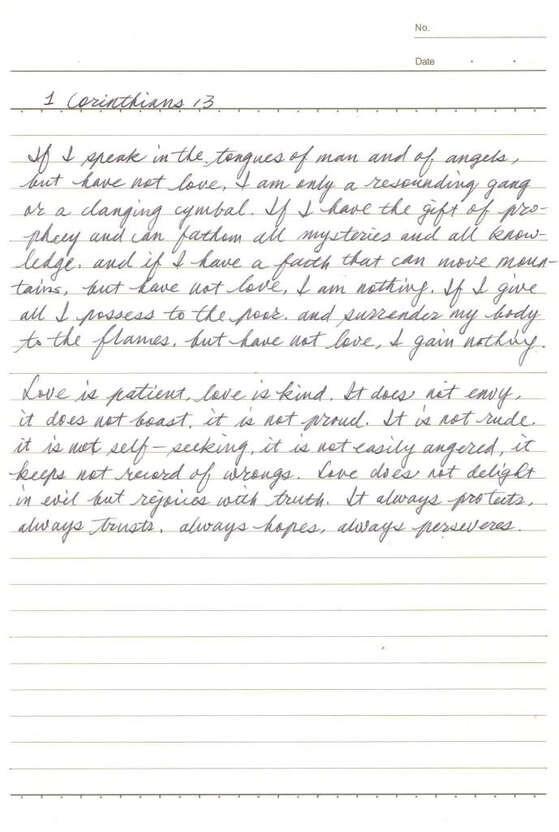 No.
Date
1 Corinthians 13
If I speak in the tongues of man and of angels,
but have not love, I am only a resounding gang
or a clanging cymbal. If I have the gift of pro-
phecy and can fathom all mysteries and all know-
ledge, and if I have a faith that can move moun-
tains, but have not love, I am nothing. If I give
all I possess to the poor, and surrender my body
to the flames, but have not love, I gain nothing.
Love is patient, love is kind. It does not envy,
it does not boast, it is not proud. It is not rude,
it is not self-seeking, it is not easily angered, it
keeps not record of wrongs. Love does not delight
in evil but rejoices with truth. It always protects,
always trusts, always hopes, always perseveres.